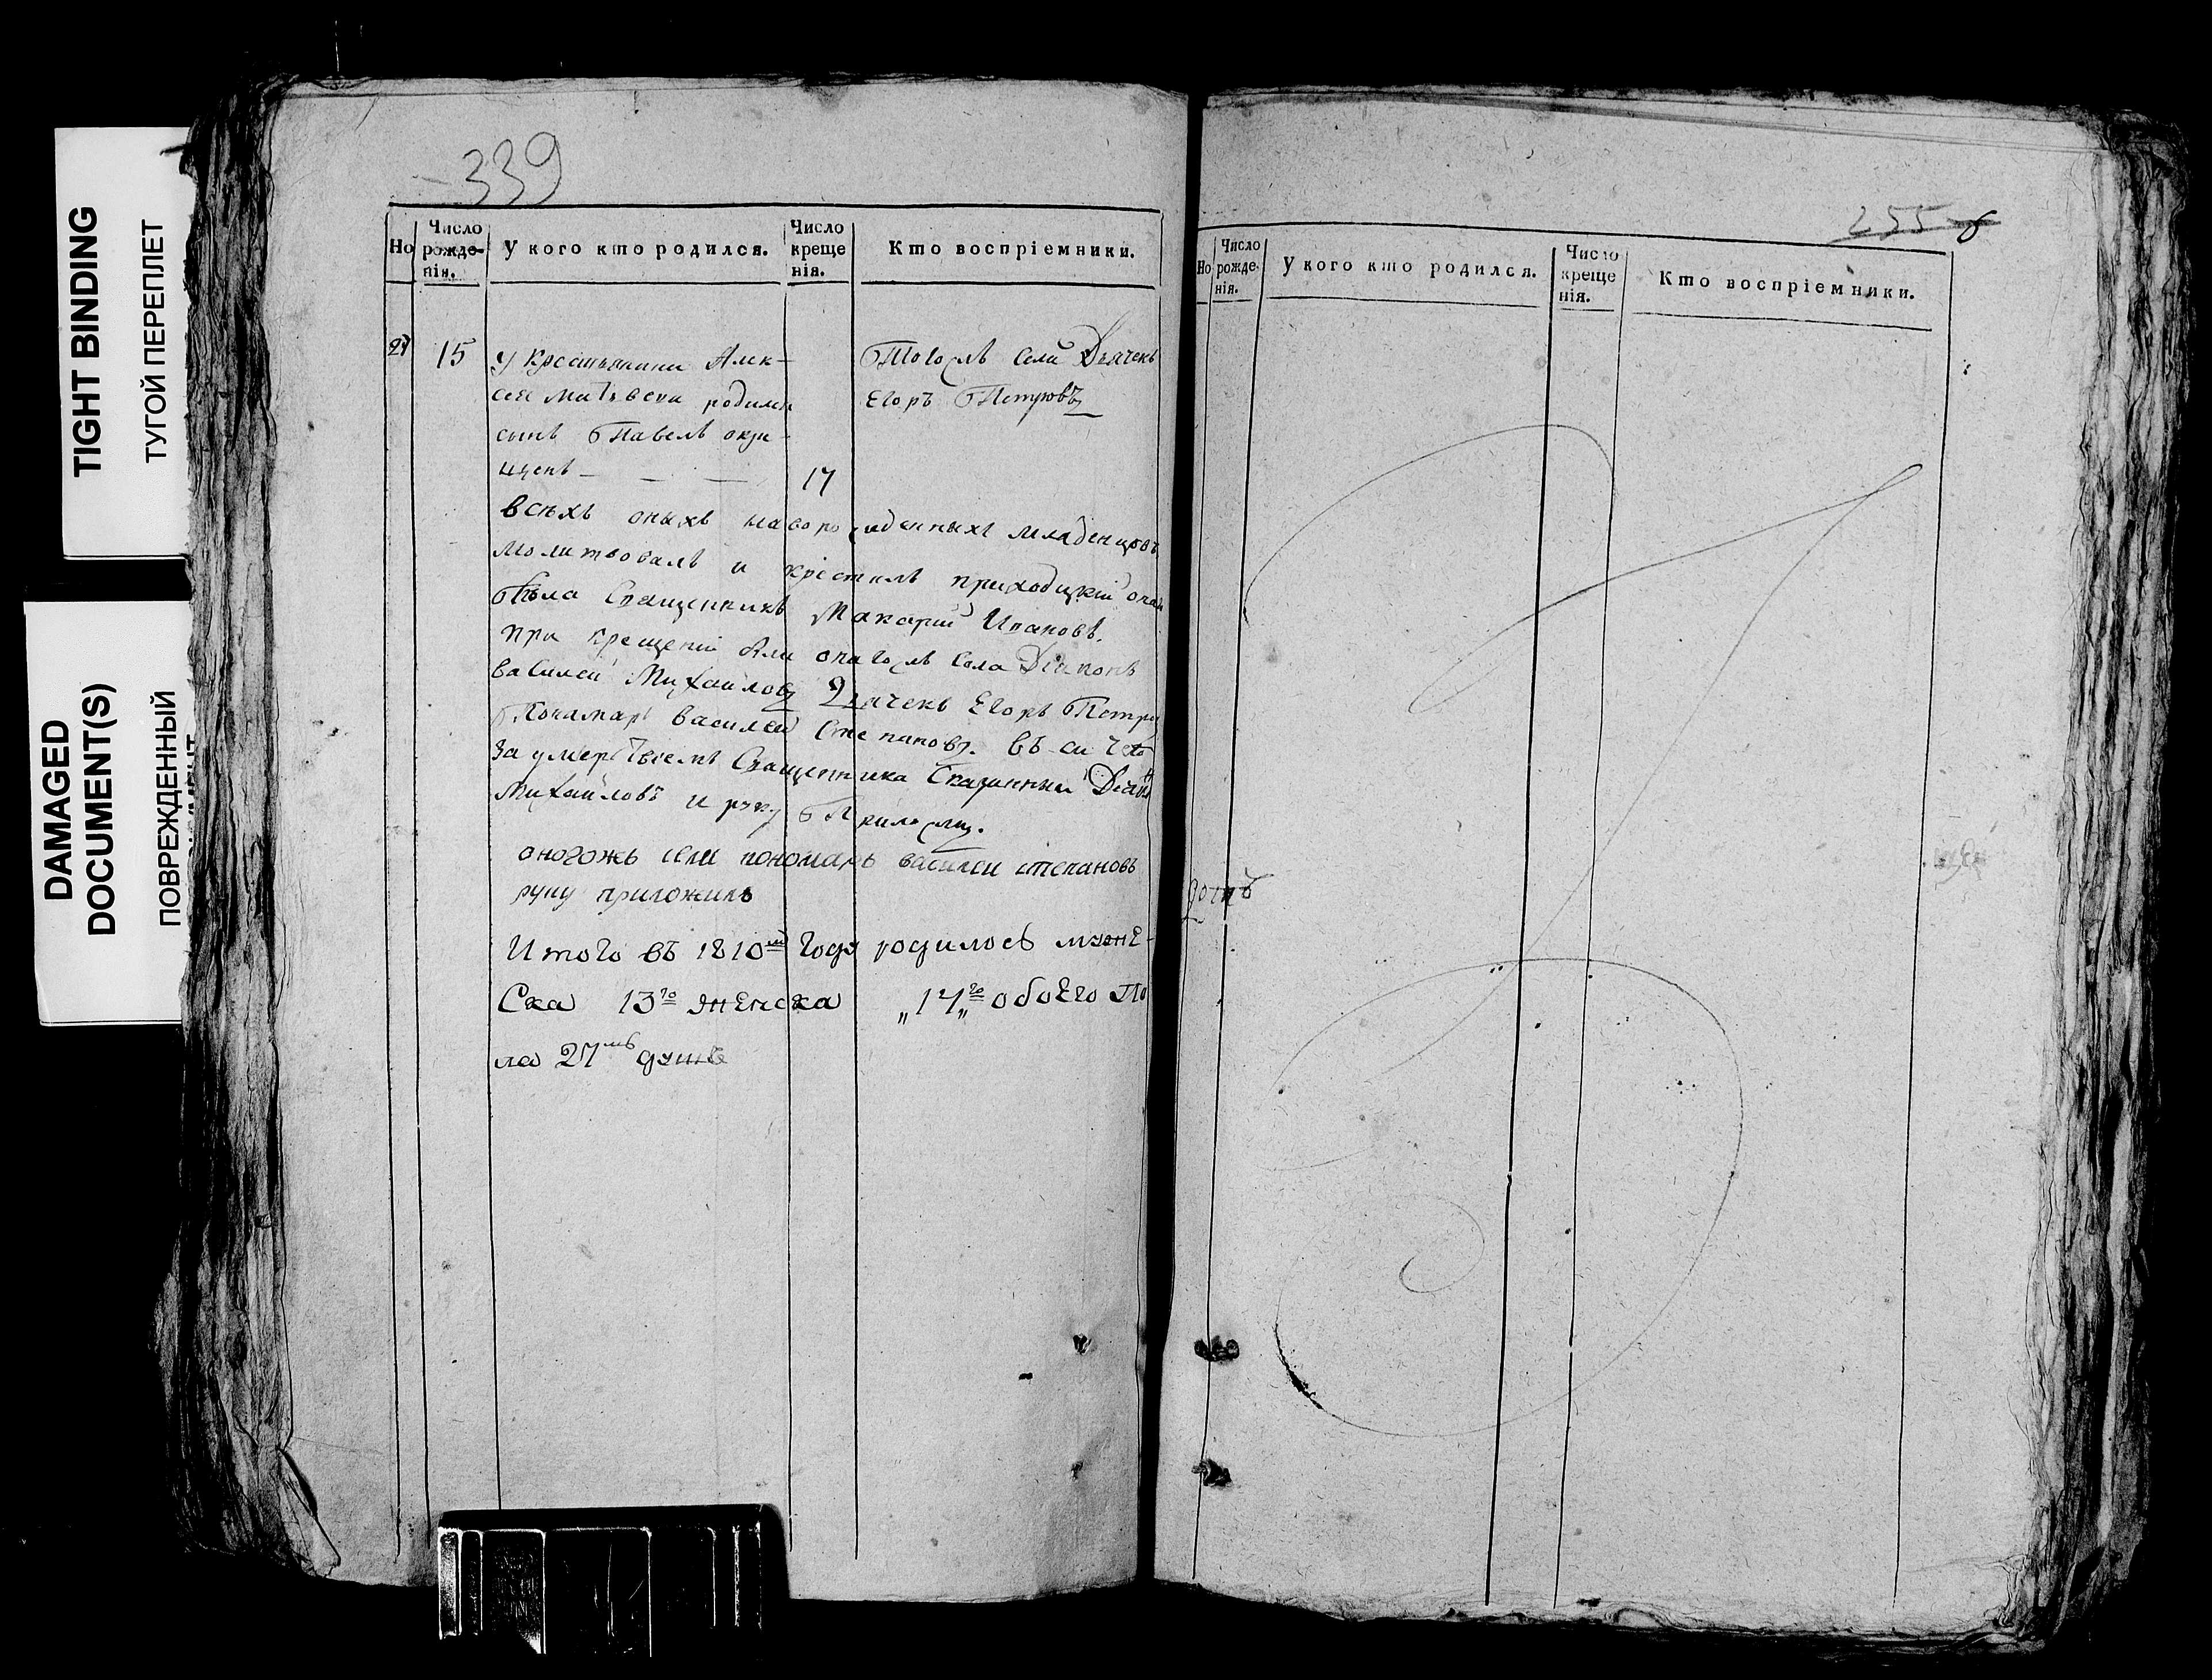 TIGHT BINDING
ТУГОЙ ПЕРЕПЛЕТ
DAMAGED
DOCUMENT(S)
ПОВРЕЖДЕННЫЙ
339
Но
Число рожденія.
У кого кто родился.
Число крещенія.
Кто воспріемники.
27 15 У крестьянина Алек-
сея Матвеева родился
сынъ Павелъ окре-
щенъ 17
Тогожъ села Дьячекъ
Егоръ Петровъ
всѣхъ оныхъ новорожденныхъ младенцовъ
молитвовалъ и крестилъ приходцкій
Священникъ Макарій Ивановъ.
при крещеніи были онагожъ села Діаконъ
василей Михайловъ Дьячекъ Егоръ Петро
Пономарь василей Степановъ. въ
За умертвіемъ Священника Діаконъ
Михайловъ и руку Приложилъ.
оногожъ села пономарь василеи степановъ
руку приложилъ
Итого въ 1810мъ Году родилосъ муже-
Ска 13го женска „14„го обоего По
ла 27мь душъ
255 6
Но
Число рожденія.
У кого кто родился.
Число крещенія.
Кто воспріемники.